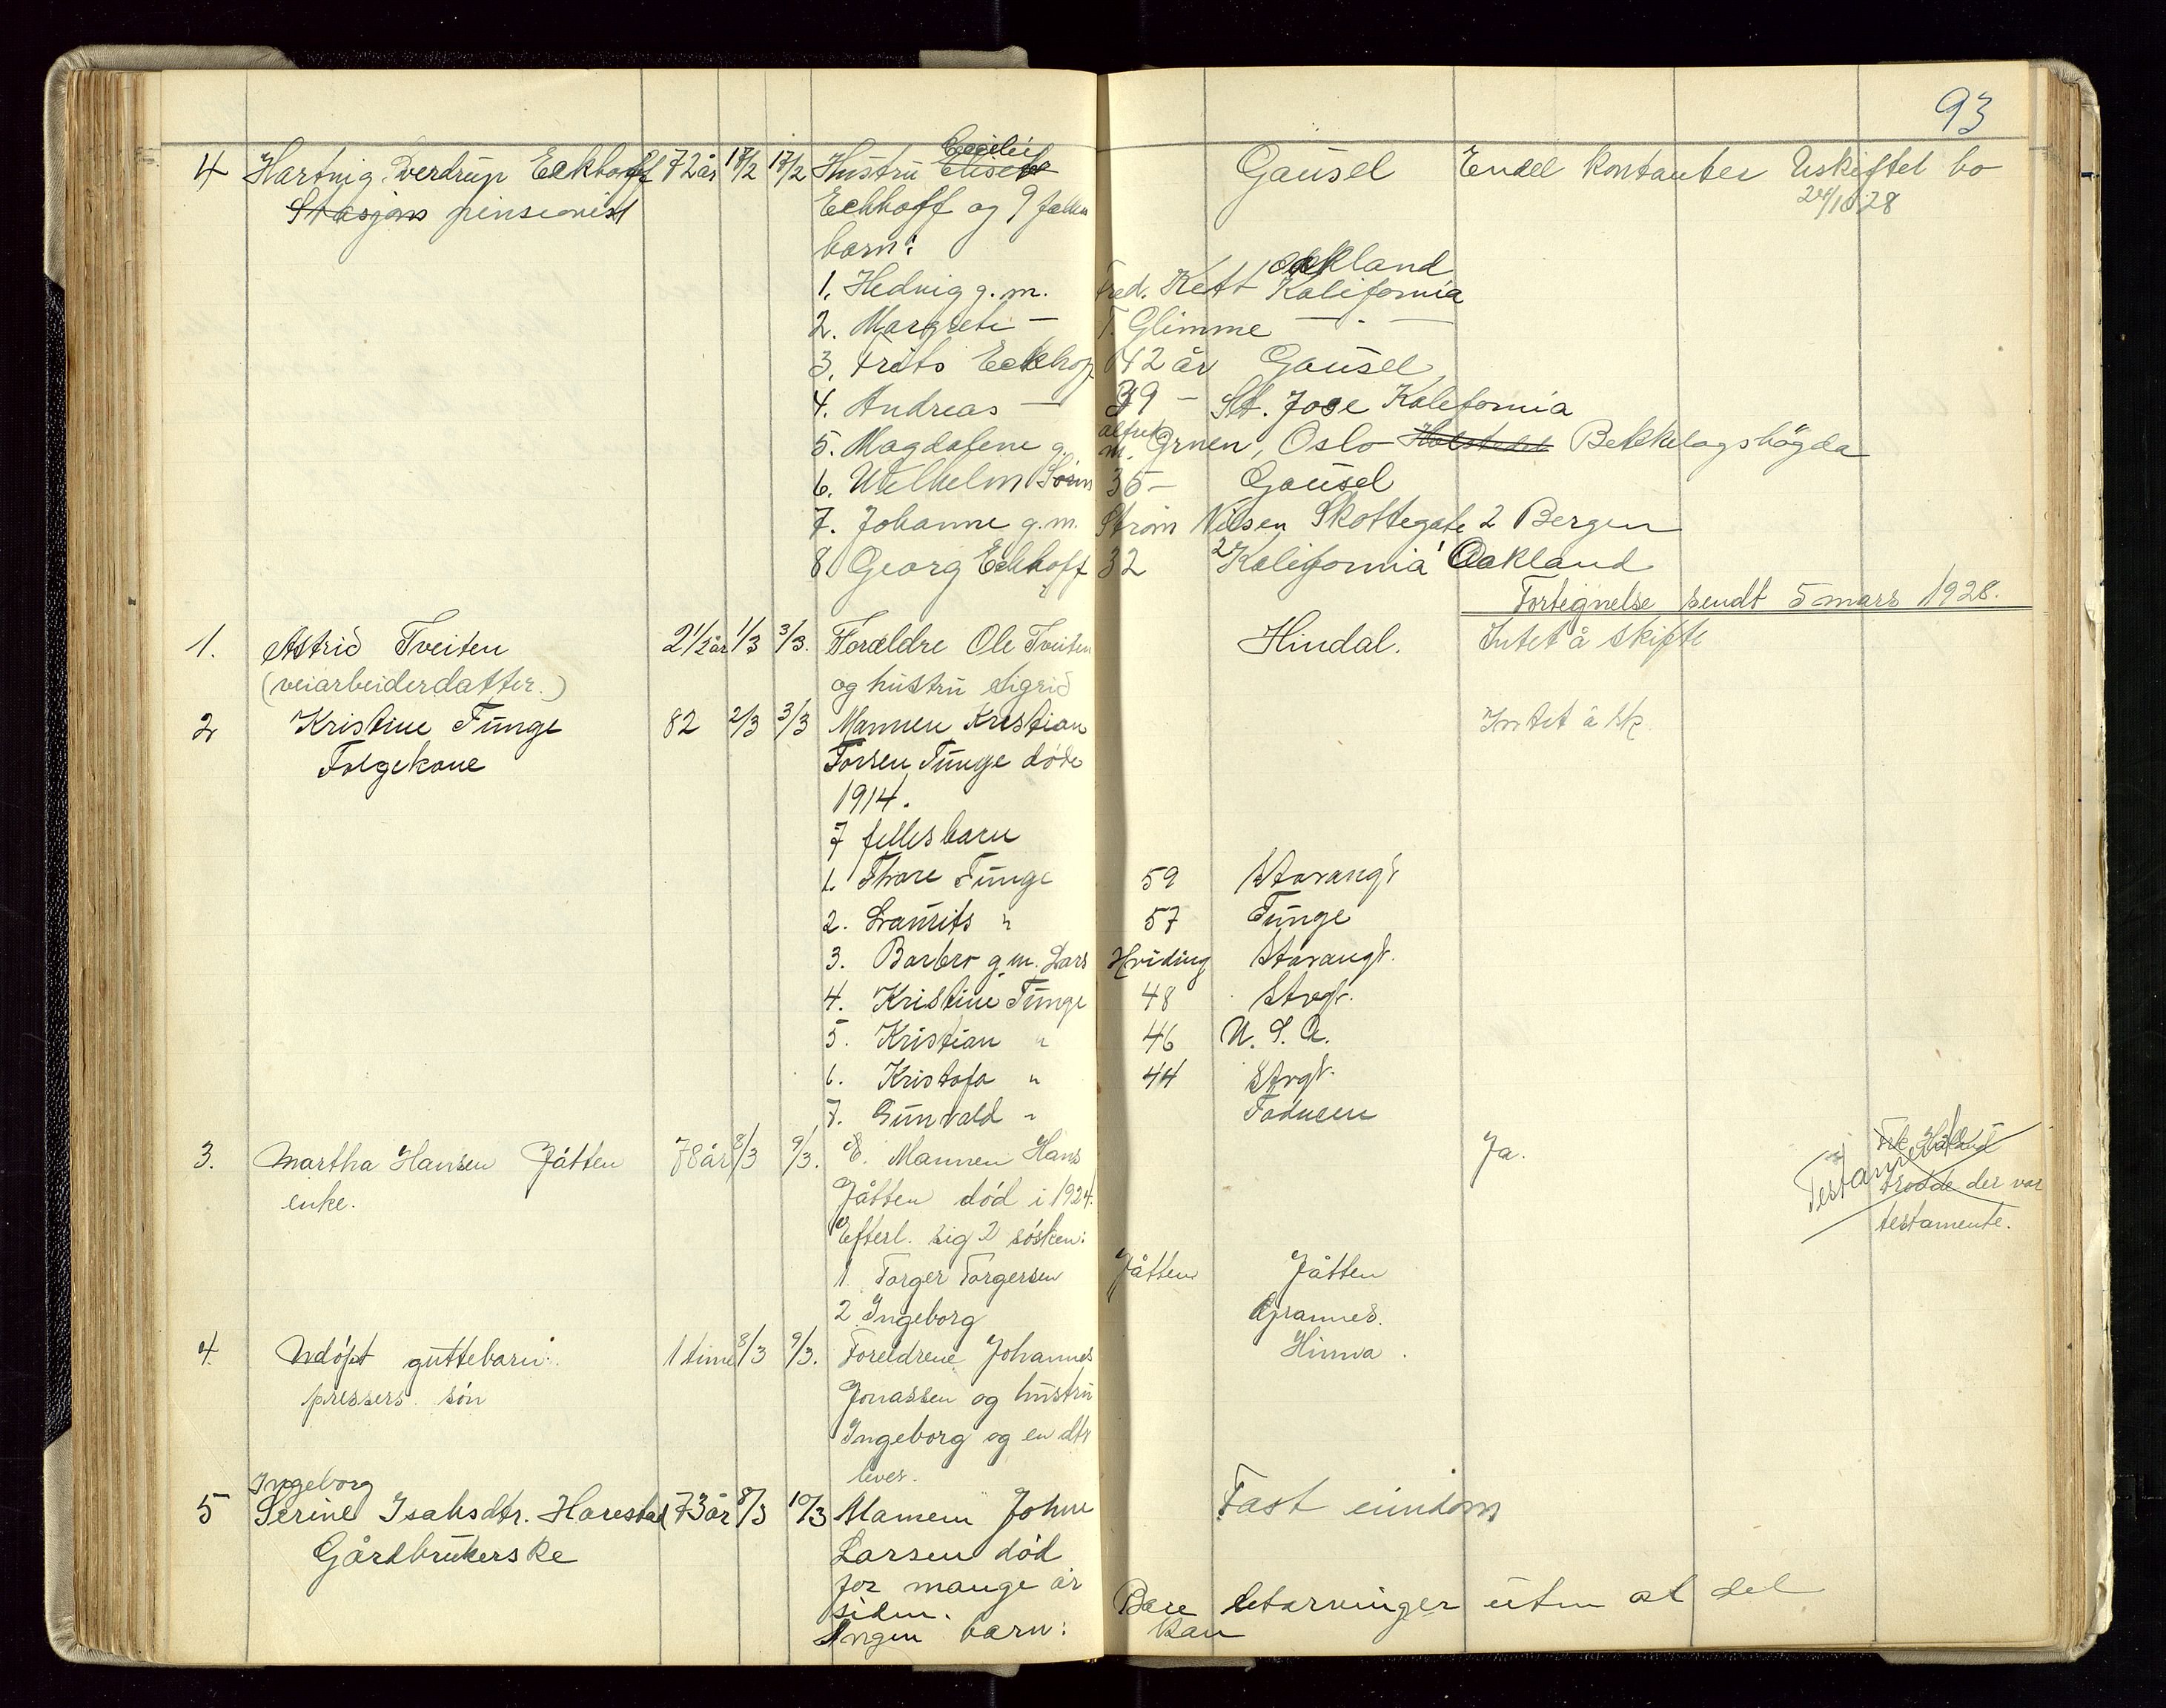 93
4 Hartvig Sverdrup Eckhoff 72 år 17/2 17/2 Hustru Elisab Cecilie Gausel Endel kontanter Uskiftet bo
Stasjons pensionist Eckhoff og 9 felles 24/10 28
barn:
Oakland
1. Hedvig g. m. Fred. Kett Kalifornia
2. Margrete — T. Glimme — " —
3. Frits Eckhoff 42 år Gausel
4. Andreas — 39 — St. Jose Kalifornia
5. Magdalene g. m. Alfred Gruen, Oslo Bekkelagshögda
6. Wilhelm 35 — Gausel
7. Johanne g. m. Strøm Nilsen Skottegate 2 Bergen
8 Georg Eckhoff 32 Kalifornia Oakland
Fortegnelse sendt 5 mars 1928.
1. Astrid Tveiten 2 1/2 år 1/3 3/3. Forældre Ole Tveiten Hindal. Intet å skifte
(veiarbeiderdatter.) og hustru Sigrid
2 Kristine Tunge 82 2/3 3/3 Mannen Kristian Intet å sk.
Folgekone Torsen Tunge døde
1914.
7 felles barn
1. Thore Tunge 59 Stavangr
2. Laurits " 57 Tunge
3. Barbro g. m. Lars Hviding Stavangr.
4. Kristine Tunge 48 Stvgr.
5. Kristian " 46 U. S. A.
6. Kristofa " 44 Stvgr.
7. Gunvald "
3. Martha Hansen Jåtten 78 år 8/3 9/3. E. Mannen Hans Ja. Testamente Frk. Håland
enke. Jåtten død i 1924. trodde der var
Efterl. sig 2 søsken: testamente.
1 Torger Torgersen Jåtten Jåtten
2 Ingeborg Grannes.
4. Udøpt guttebarn 1 time 8/3 9/3. Foreldrene Johannes Hinna.
pressers søn Jonassen og hustru
Ingeborg og en dtr
lever.
Ingeborg
5 Serine Isaksdtr. Harestad 73 år 8/3 10/3 Mannen Johne Fast eiendom
Gårdbrukerske Larsen død
for mange år
siden. Bare utarvinger uten at del
Ingen barn: kan